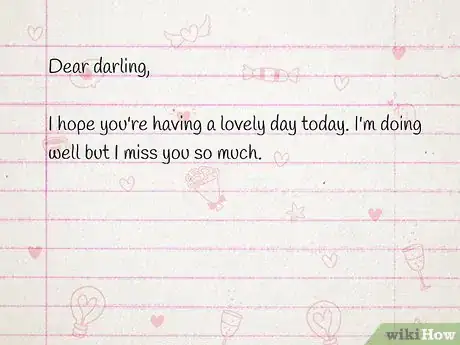 Dear darling,
I hope you're having a lovely day today. I'm doing
well but I miss you so much.
wikiHow